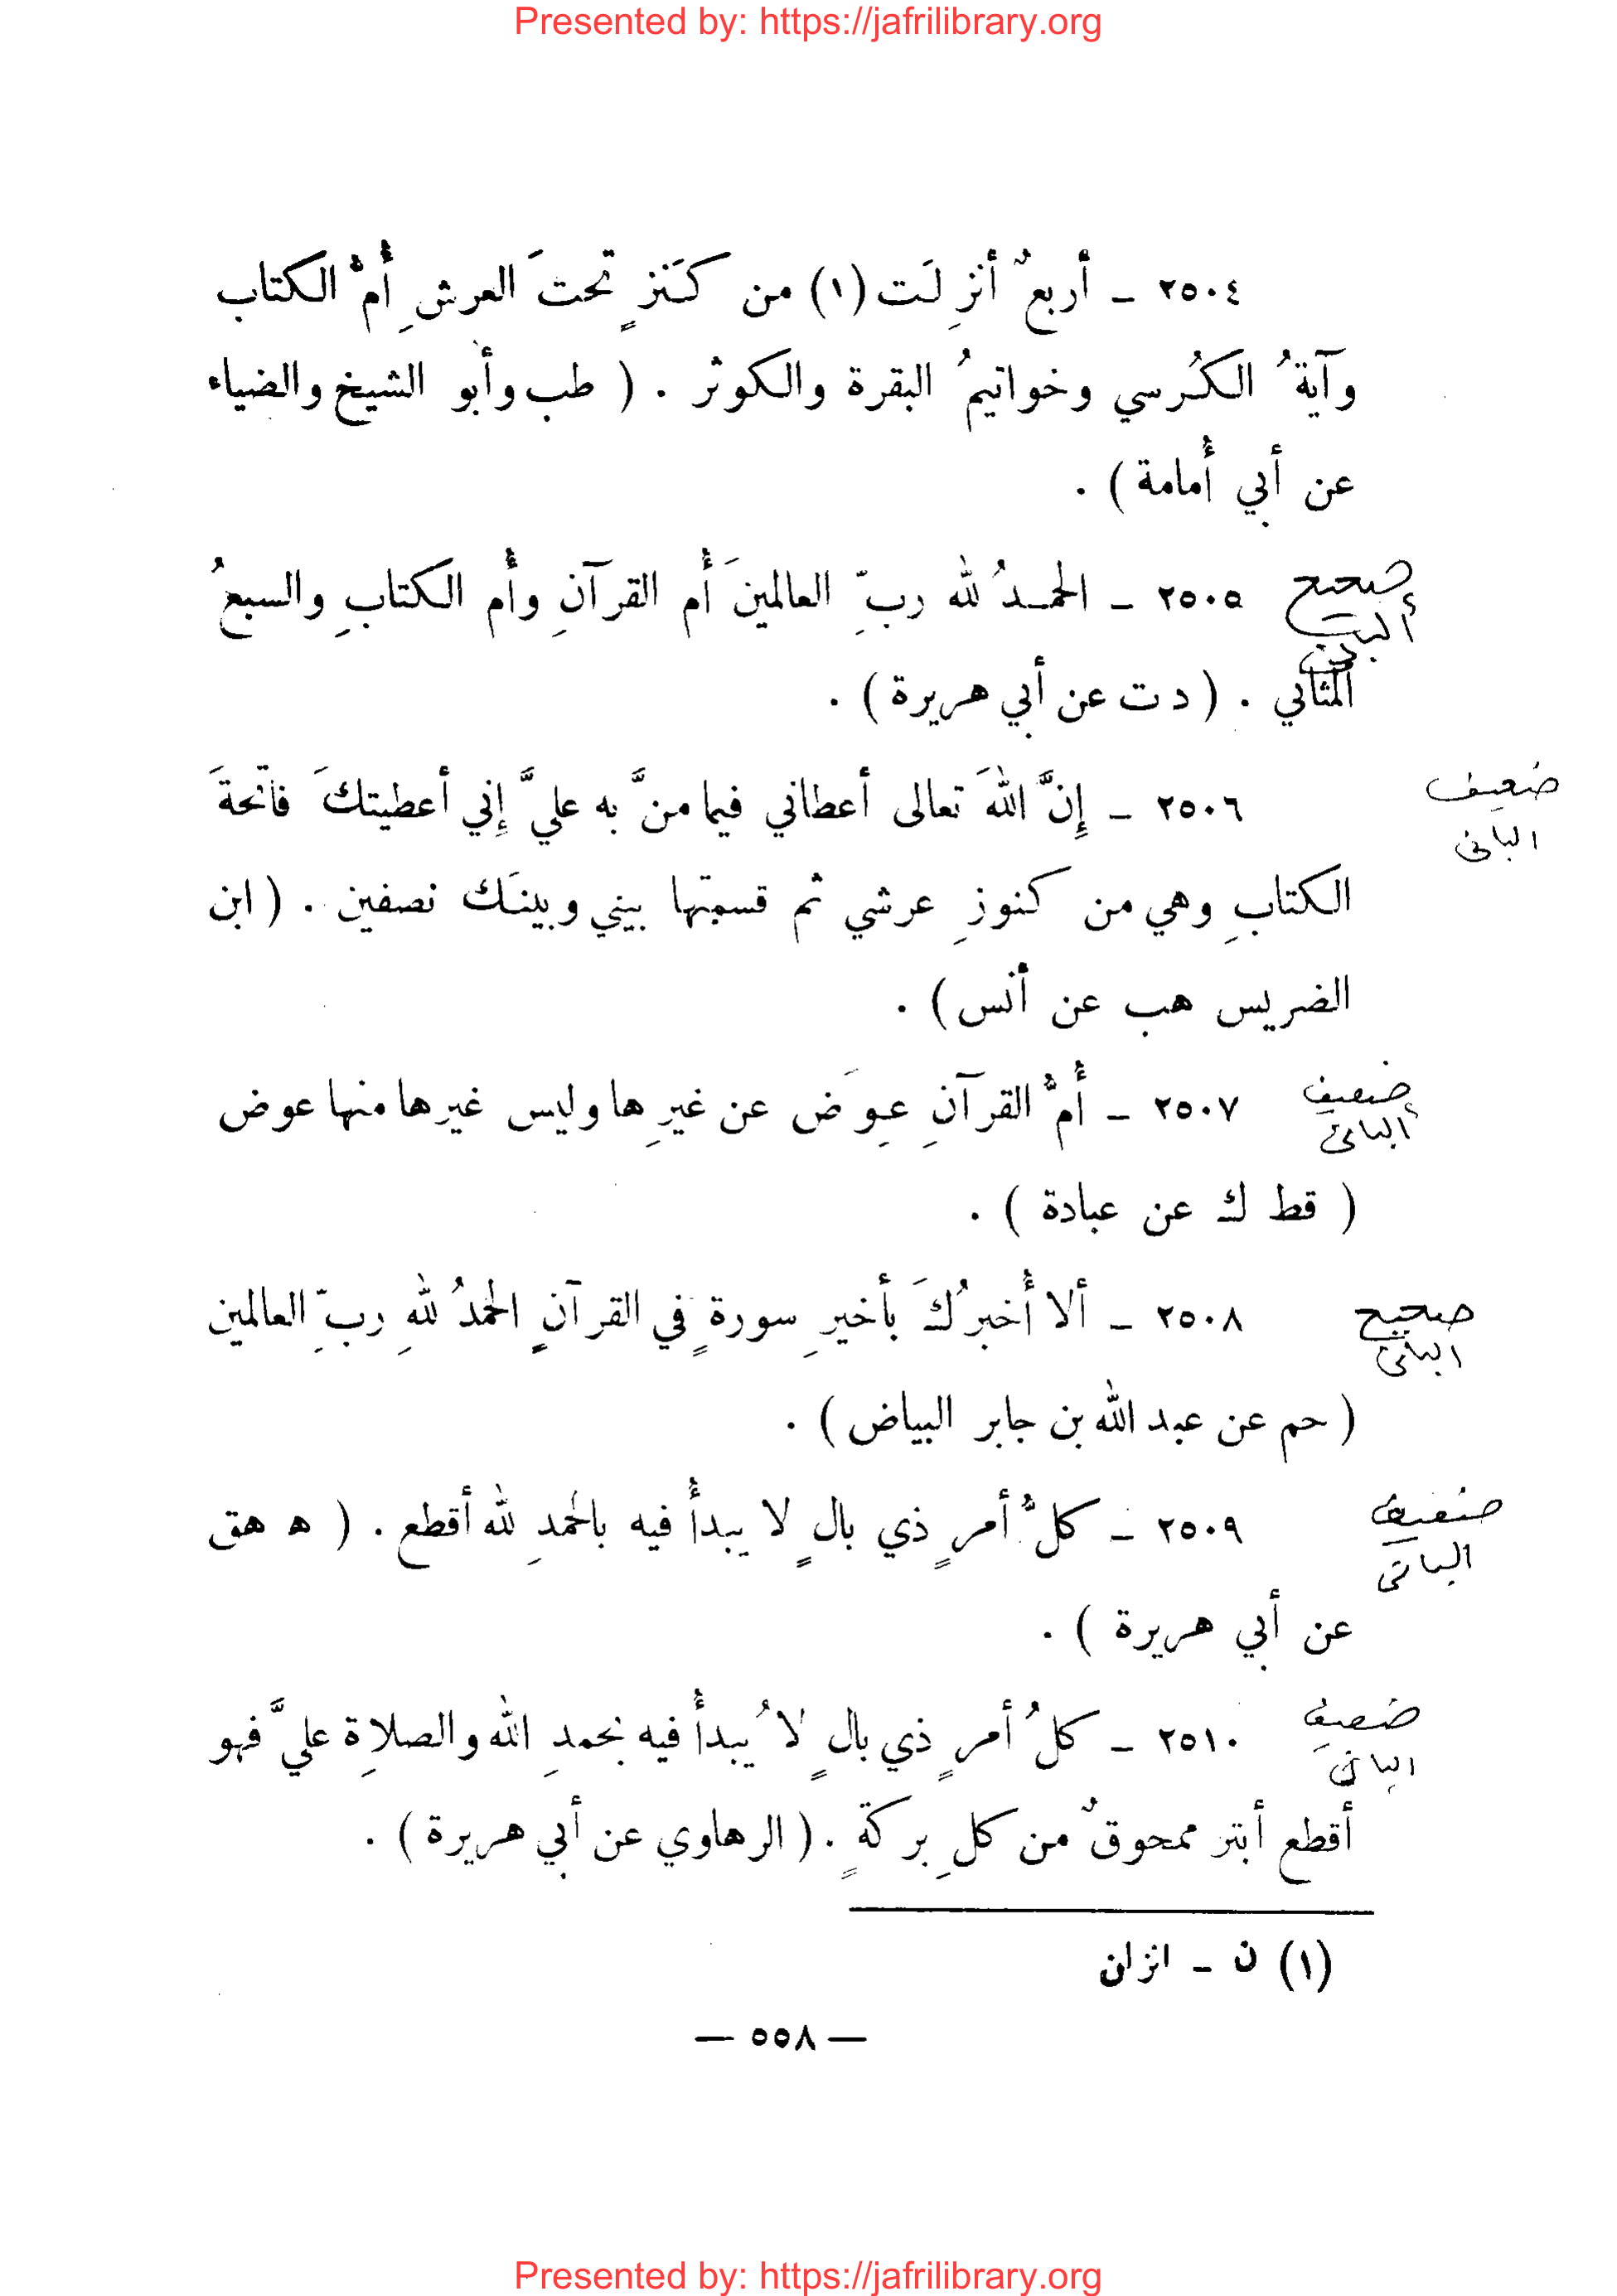 Presented by: https://jafrilibrary.org
٢٥٠٤ ـ أربعٌ أنزِلَت (١) من كَنَزٍ تحتَ العرشِ أُمُّ الكتاب
وآيةُ الكُرسي وخواتيمُ البقرة والكوثر . ( طب وأبو الشيخ والضياء
عن أبي أُمامة ) .
صحيح
ألباني
٢٥٠٥ ـ الحمـدُ لله ربِّ العالمينَ أُم القرآنِ وأُم الكتابِ والسبعُ
المثاني . ( د ت عن أبي هريرة ) .
ضعيف
البانى
٢٥٠٦ ـ إِنَّ اللهَ تعالى أعطاني فيما منَّ به عليَّ إِني أعطيتكَ فاتحةَ
الكتابِ وهي من كنوزِ عرشي ثم قسمتها بيني وبينَك نصفين . ( ابن
الضريس هب عن أنس ) .
ضعيف
ألبانى
٢٥٠٧ ـ أُمُّ القرآنِ عِوَض عن غيرِها وليس غيرها منها عوض
( قط ك عن عبادة ) .
صحيح
البانى
٢٥٠٨ ـ ألا أُخبرُكَ بأخيرِ سورةٍ في القرآنِ الحمدُ للهِ ربِّ العالمين
( حم عن عبد الله بن جابر البياض ) .
ضعيف
البانى
٢٥٠٩ ـ كلُّ أمرٍ ذي بالٍ لا يبدأُ فيه بالحمدِ لله أقطع . ( ه هق
عن أبي هريرة ) .
ضعيف
البانى
٢٥١٠ ـ كلُ أمرٍ ذي بالٍ لا يُبدأُ فيه بحمدِ الله والصلاةِ عليَّ فهو
أقطع أبتر ممحوقٌ من كلِ بركةٍ . ( الرهاوي عن أبي هريرة ) .
(١) ن ـ انزلن
— ٥٥٨ —
Presented by: https://jafrilibrary.org